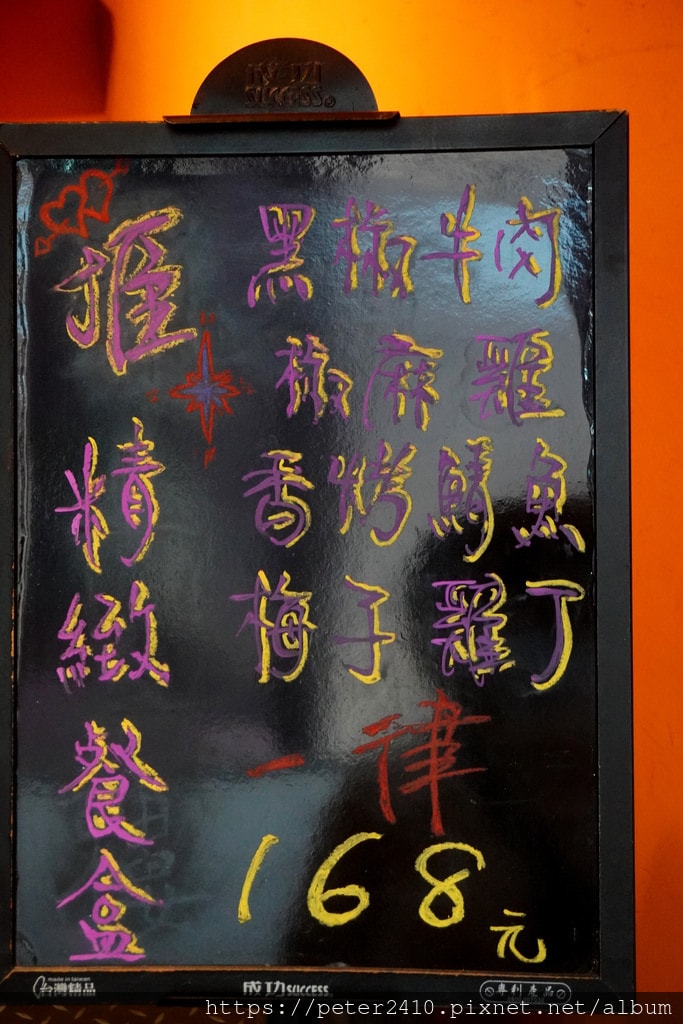 SUCCESS
推
精緻餐盒
黑椒牛肉
椒麻雞
香烤鯖魚
梅子雞丁
一律
168元
made in taiwan
台灣精品
成功SUCCESS
專利產品
https://peter2410.pixnet.net/album